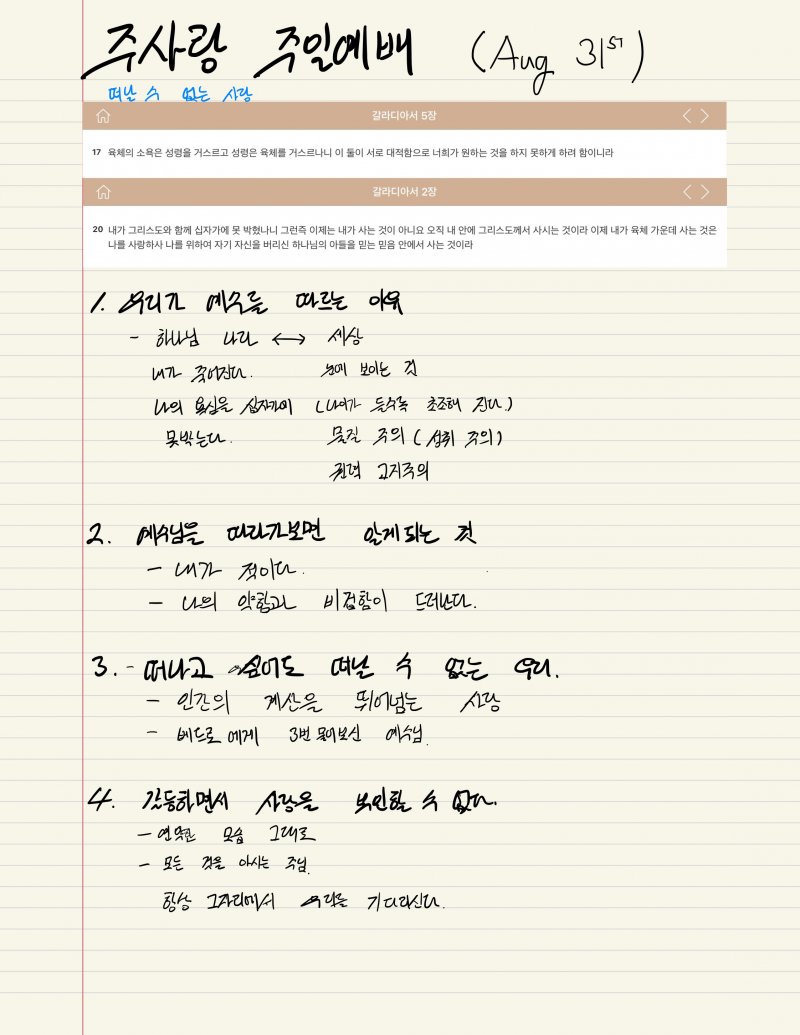 주사랑 주일예배 (Aug 31st)
떠날 수 없는 사랑
갈라디아서 5장
17 육체의 소욕은 성령을 거스르고 성령은 육체를 거스르나니 이 둘이 서로 대적함으로 너희가 원하는 것을 하지 못하게 하려 함이니라
갈라디아서 2장
20 내가 그리스도와 함께 십자가에 못 박혔나니 그런즉 이제는 내가 사는 것이 아니요 오직 내 안에 그리스도께서 사시는 것이라 이제 내가 육체 가운데 사는 것은
나를 사랑하사 나를 위하여 자기 자신을 버리신 하나님의 아들을 믿는 믿음 안에서 사는 것이라
1. 우리가 예수를 따르는 이유
- 하나님 나라 ↔ 세상
내가 죽어진다. 눈에 보이는 것
나의 욕심을 십자가에 (나이가 들수록 초조해 진다.)
못박는다. 물질 주의 (섭취 주의)
권력 고지주의
2. 예수님을 따라가보면 알게되는 것
- 내가 적이다.
- 나의 약함과 비겁함이 드러난다.
3. - 떠나고 싶어도 떠날 수 없는 우리.
- 인간의 계산을 뛰어넘는 사랑
- 베드로에게 3번 물어보신 예수님.
4. 갈등하면서 사랑을 부인할 수 없다.
- 연약한 모습 그대로
- 모든 것을 아시는 주님.
항상 그자리에서 우리를 기다리신다.